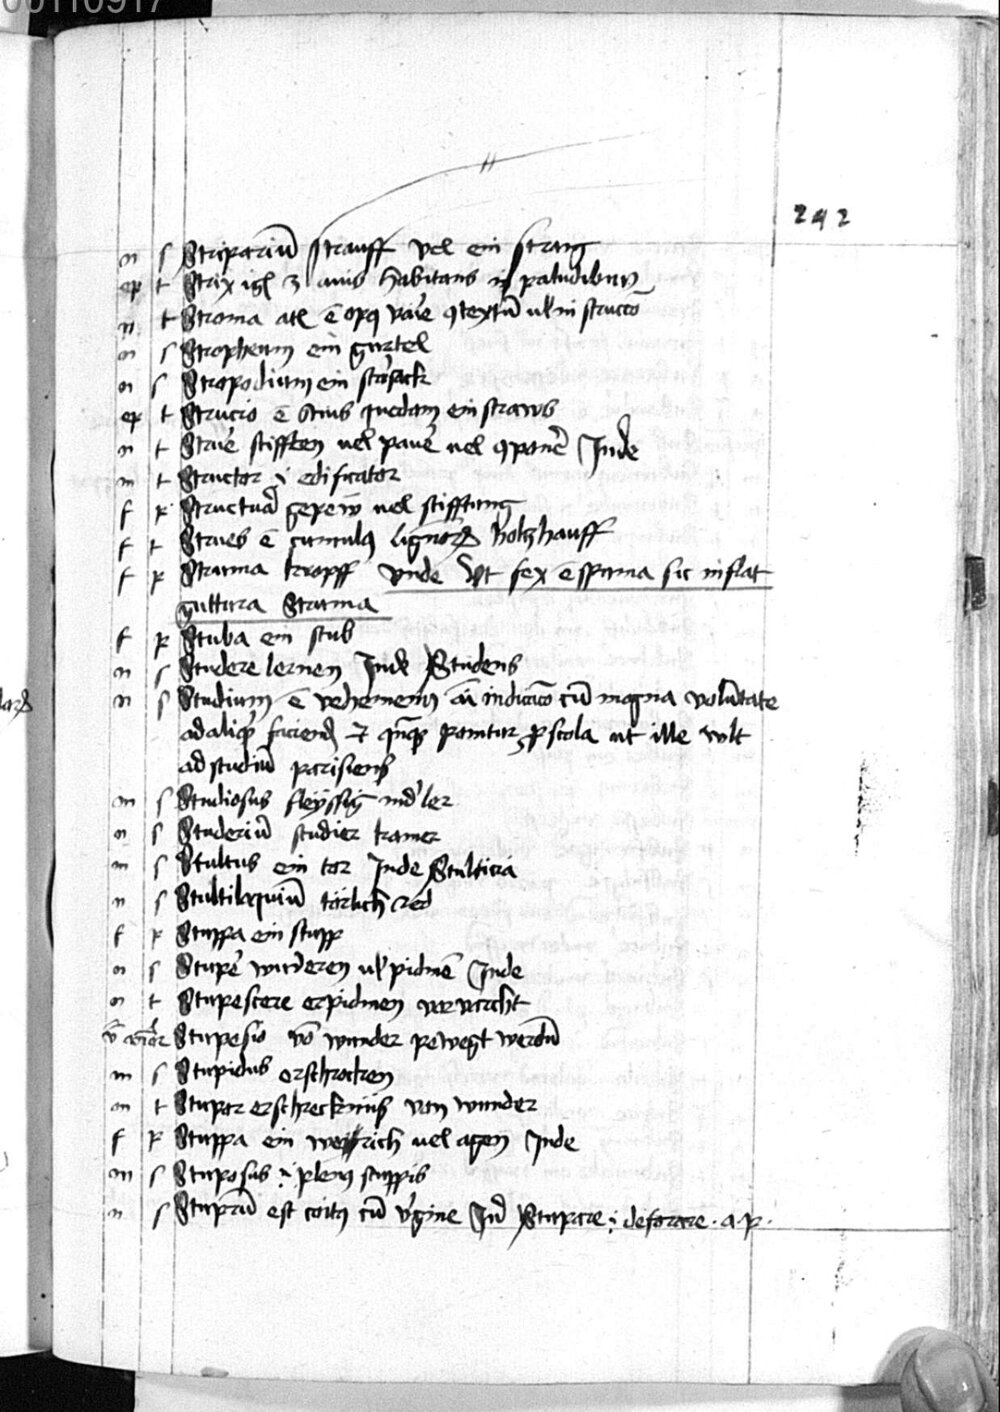 00110917
242
n s Striparium̄ strauff vel ein strang
ep t Strix igl ʒ avis habitans in paludibus
n t Stroma atis ē opus varie ꝯtextū vel in structo
n s Stropheum ein gurtel
n s Stropodium ein strosack
ep t Strucio ē avis quedam ein straws
n t Struē stifften vel pauē vel ꝯponē Inde
m t Structor i edificator
f p Structura gepew vel stifftung
f t Strues ē cumulus lignorum holtzhauff
f p Struma kropff Vnde Vt fex ē spuma sic inflat
guttura Struma
f p Stuba ein stub
n s Studere lernen Inde Studens
n s Studium ē vehemens animi inductio cū magna voluntate
ad aliquid faciend et quandoque ponitur pro scola ut ille vult
ad studiū parisiens
m s Studiosus fleyssig
n s Studoriū studier kamer
m s Stultus ein tor Inde Stulticia
n s Stultiloquiū torlich red
f p Stuppa ein stupp
n s Stupē wunderen vel pidmē Inde
n t Stupescere erpidmen vorvorcht
Stupefio vō wunder pewegt werdn̄
m s Stupidus erschrocken
m t Stupor erschrecknus von wunder
f p Stuppa ein werch vel agen Inde
m s Stuposus i plenus stuppis
n s Stuprū est coitus cū virgine Inde Stuprare i deflorare . a . p .